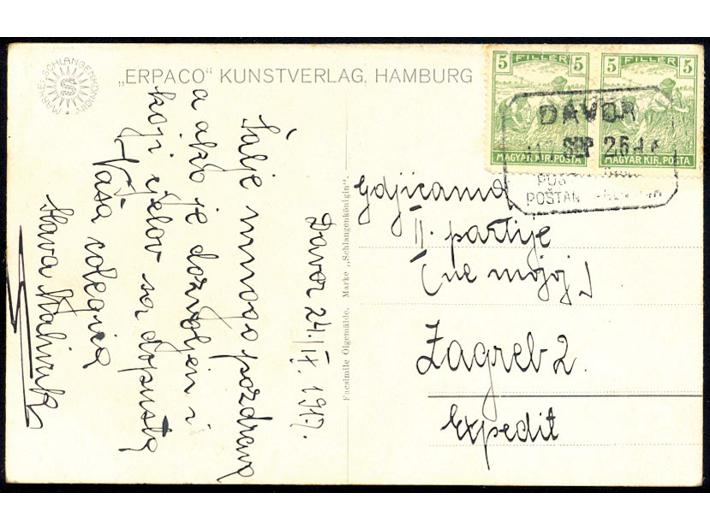 „ERPACO“ KUNSTVERLAG, HAMBURG
MARKE „SCHLANGENKÖNIGIN“
5 FILLER 5
MAGYAR KIR. POSTA
5 FILLER 5
MAGYAR KIR. POSTA
DAVOR
SEP 25
POŠTAN
Davor 24./IX. 1917.
Šalje mnogo pozdrava
a ako je dozvoljen i
koji cjelov sa dopusta
Vaša colegica
Slava
Facsimile Ölgemälde, Marke „Schlangenkönigin“.
Gdjicama
II. partije
(ne mojoj)
Zagreb 2.
Expedit